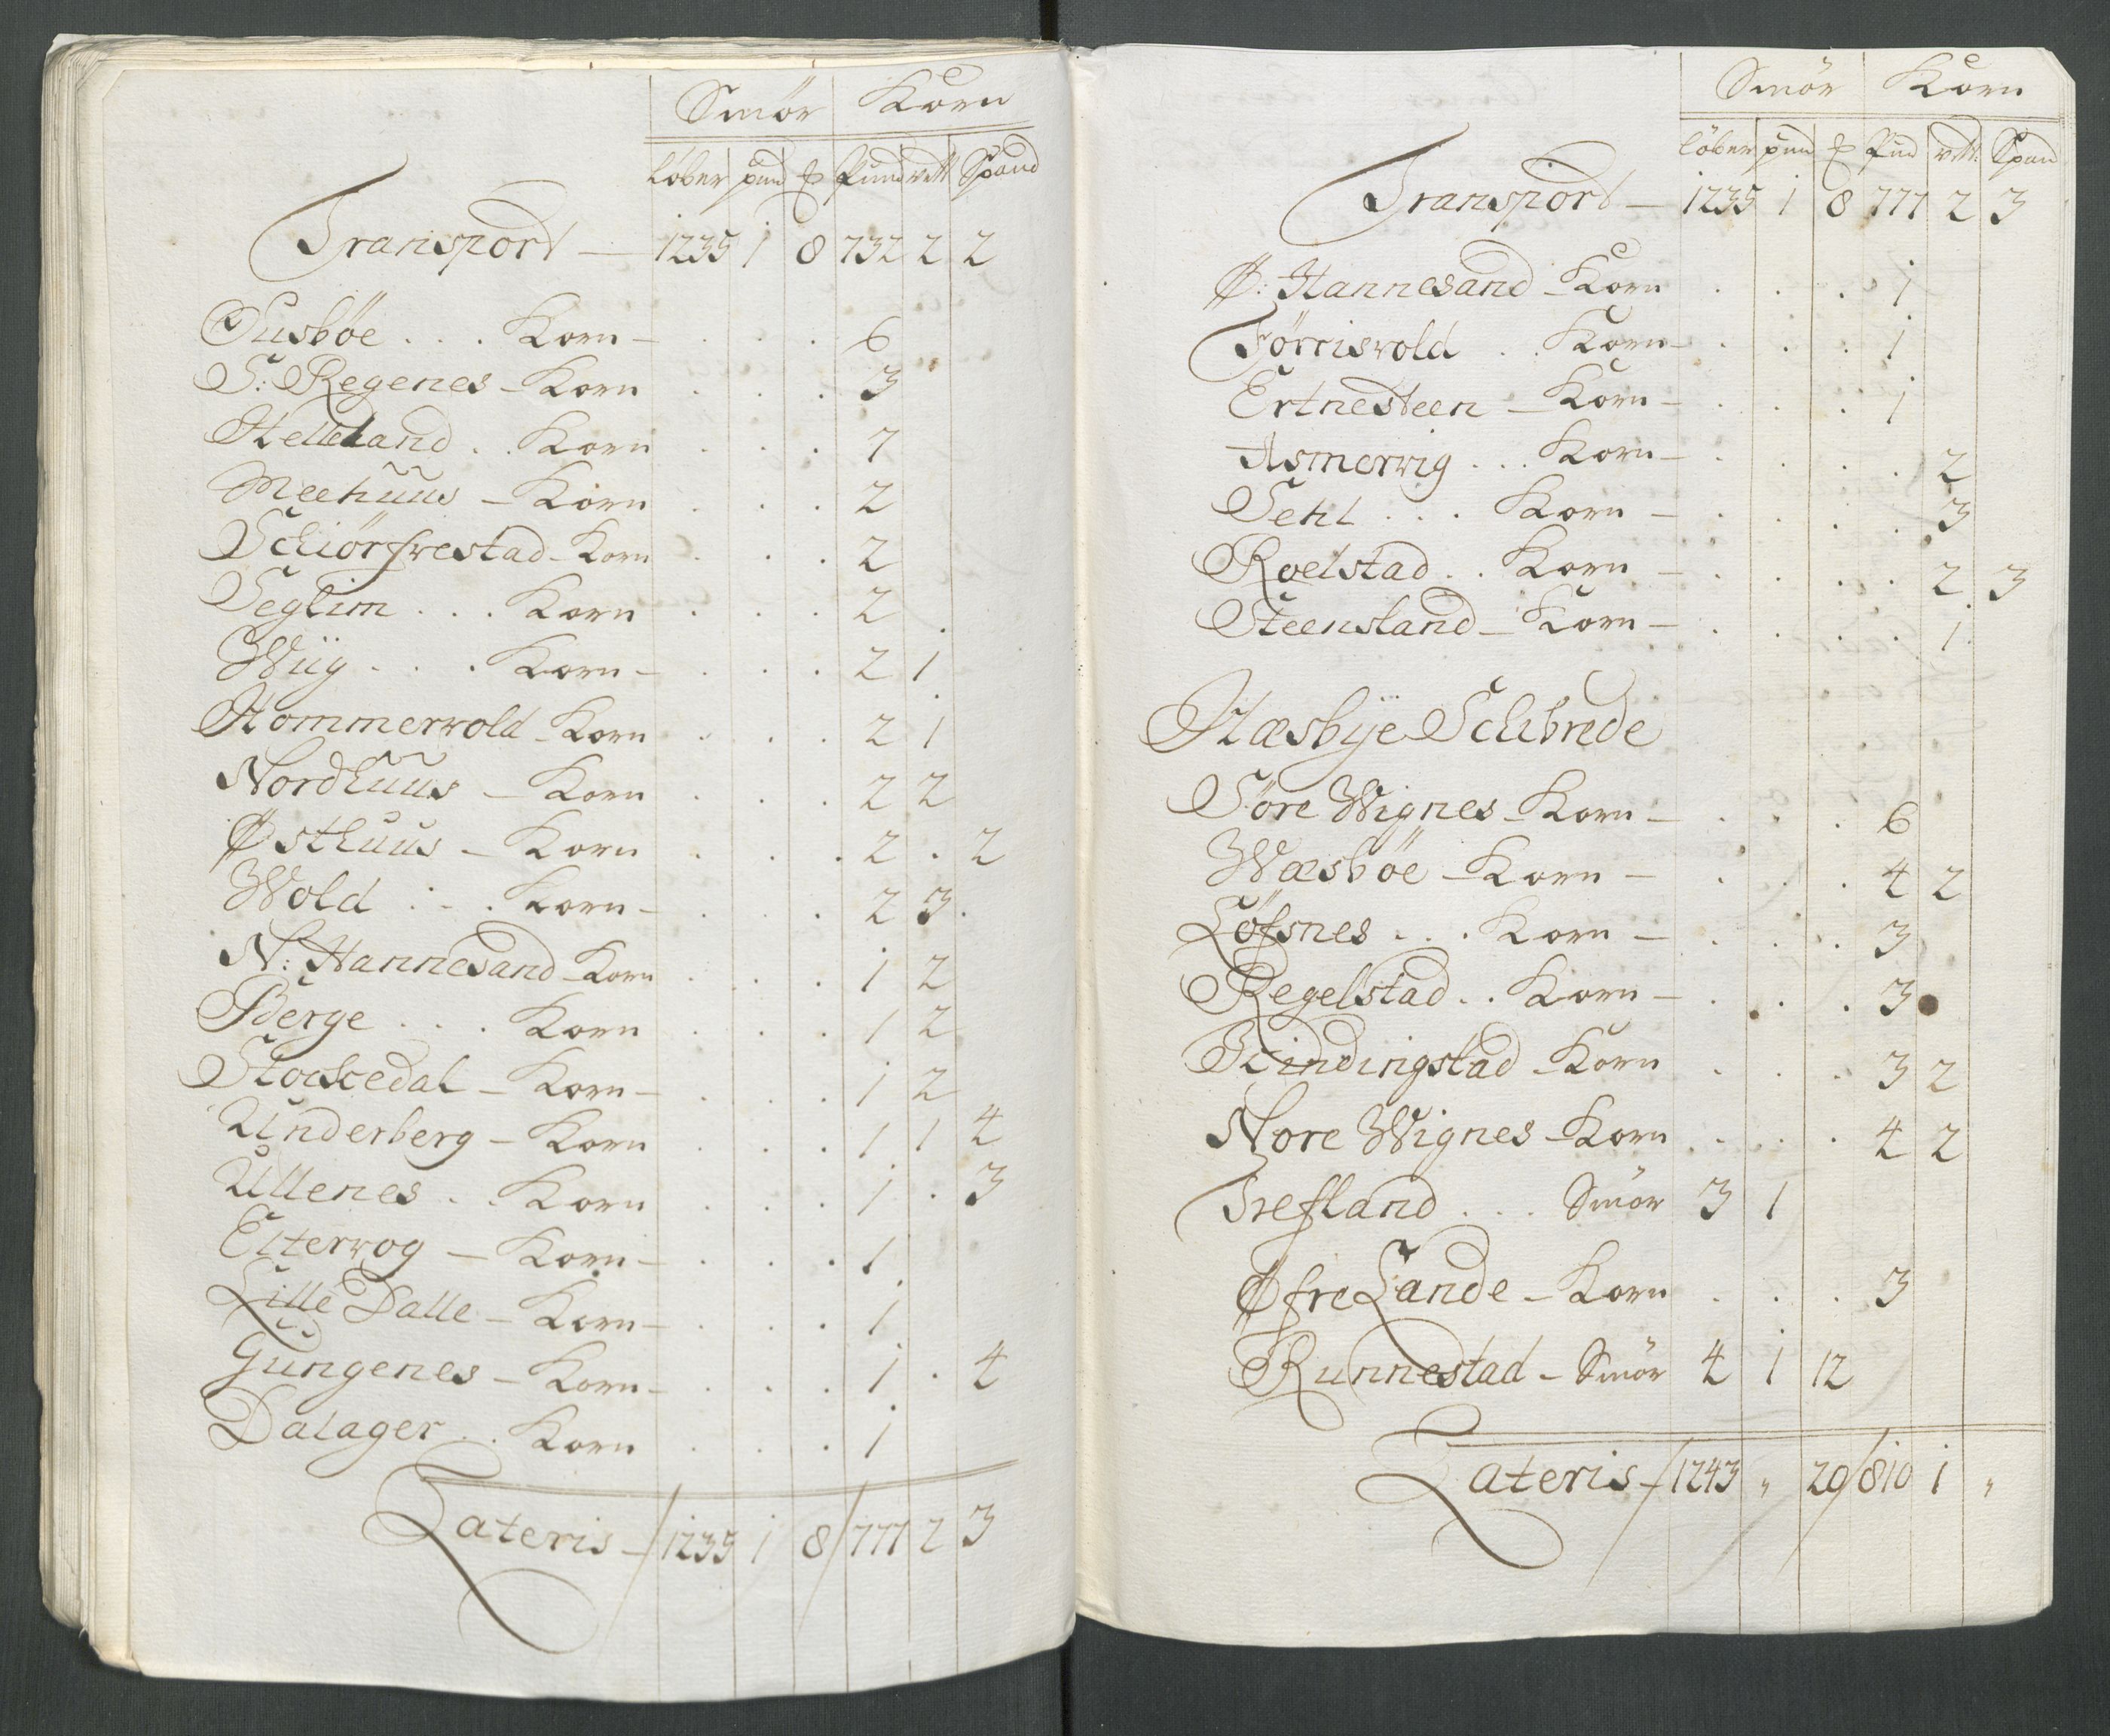 Smör Korn
Løber pund ℔ Pund vett Spand
Transport — 1235 1 8 732 2 2
Susböe . . . Korn — . . . 6
S: Regenes — Korn . . . 3
Helleland . . Korn . . . 7
Meehuus — Korn . . . 2
Schiörfrestad — Korn . . . 2
Seglim . . . Korn . . . 2
Wiig . . . Korn — . . . 2 1
Hommervold — Korn . . . 2 1
Nordhuus — Korn . . . 2 2
Østhuus — Korn . . . 2 . 2
Wold . . . Korn — . . . 2 3
N: Hannesand — Korn . . . 1 2
Berge . . . Korn . . . 1 2
Stockedal — Korn — . . . 1 2
Underberg — Korn . . . 1 1 4
Ullenes . . Korn . . . 1 . 3
Eltervog — Korn — . . . 1
Lille Dalle — Korn — . . . 1
Gungenes — Korn — . . . 1 . 4
Dalager . . Korn . . . 1
Lateris — / 1235 1 8 / 777 2 3
Smör Korn
Löber pund ℔ Pud vett Span
Transport — 1235 1 8 777 2 3
Ø: Hannesand — Korn . . . 1
Förrisvold . . Korn — . . . 1
Ertnesteen — Korn — . . . 1
Asmervig . . . Korn — . . . . 2
Sehl . . . Korn — . . . . 3
Roelstad . . Korn — . . . . 2 3
Steensland — Korn — . . . . 1
Hæsbye Schibrede
Søre Wignes — Korn — . . . 6
Wæsböe — Korn — . . . 4 2
Löfsnes . . . Korn — . . . 3
Regelstad . . Korn — . . . 3
Kindingstad — Korn . . . 3 2
Nore Wignes — Korn . . . 4 2
Trefland . . . Smör 3 1
Øfre Lande — Korn . . . 3
Runnestad — Smör 4 1 12
Lateris — / 1243 „ 20 / 810 1 „